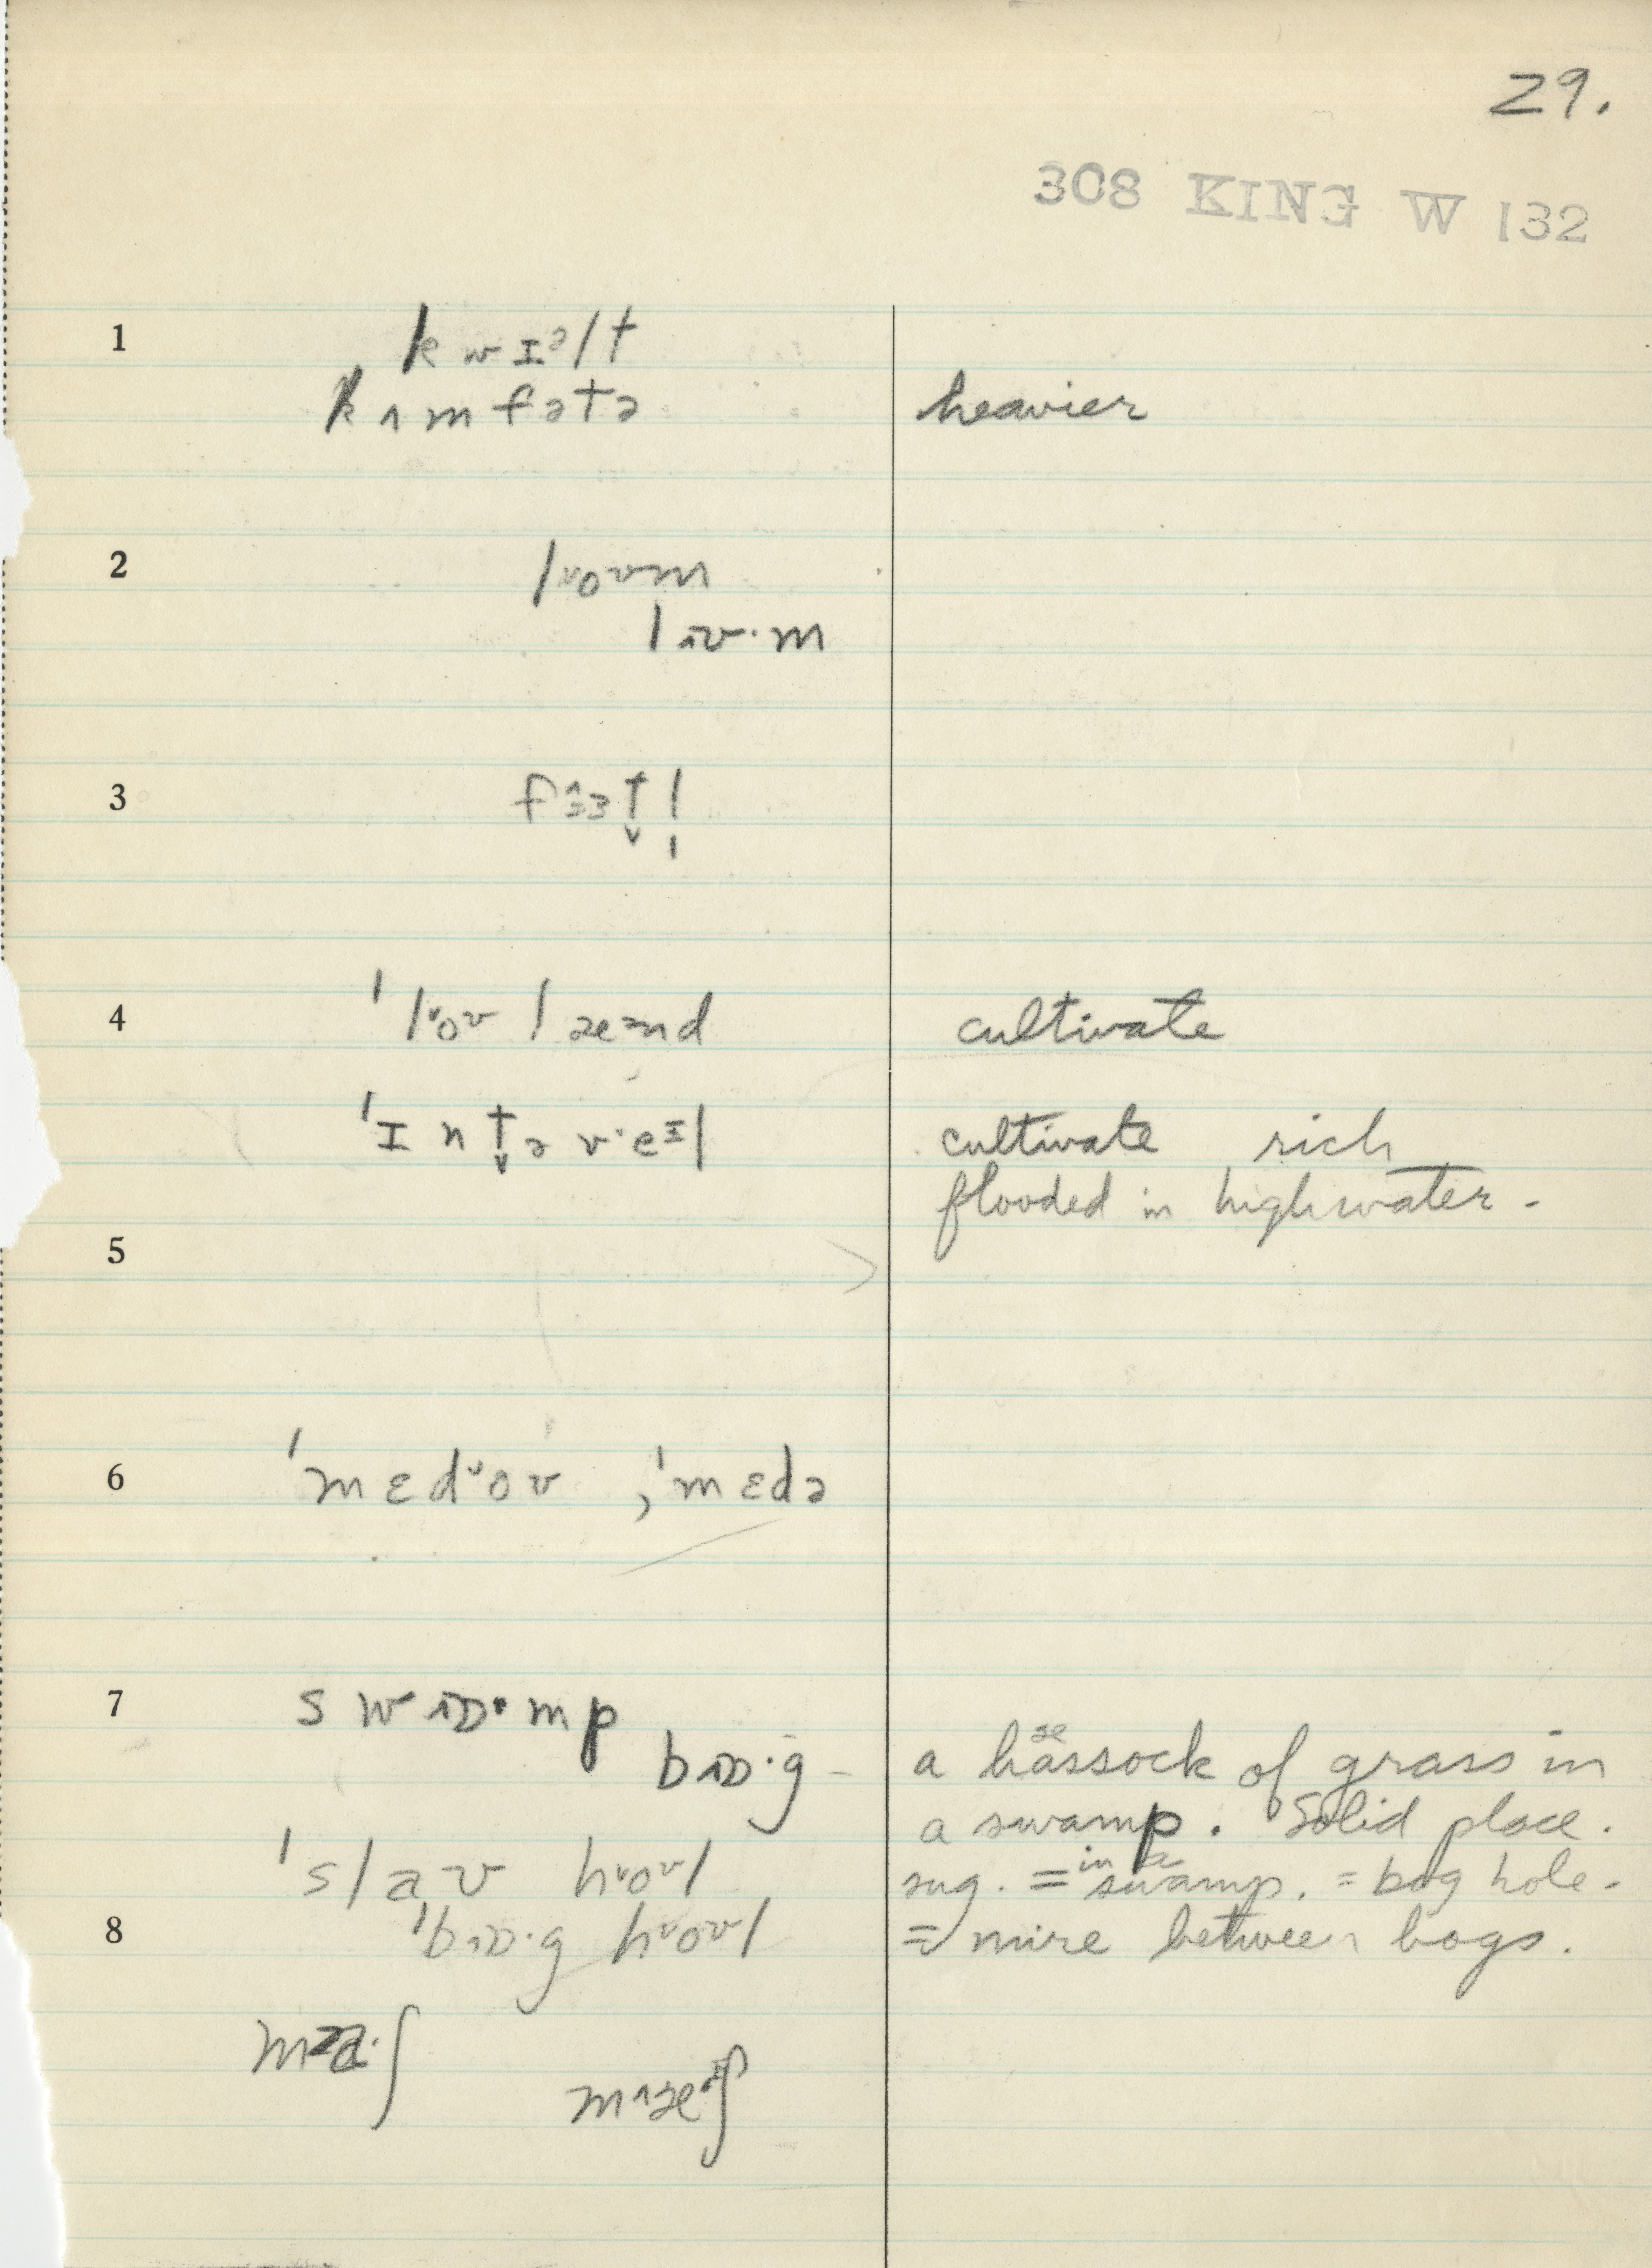 29.
308 KING W 132
1
kwɪᵊlt
kʌmfətə heavier
2
lᵘoᴜm
lɪᴜ·m
3
4
ˈlᵘoᴜ læᵊnd cultivate
ˈɪnt̬əv·eɪl cultivate rich
flooded in highwater -
5
6
ˈmɛdᵘoᴜ ; ˈmɛdə
7
swɒ·mp
bɒ·g - a hassock of grass in
a swamp. Solid place.
ˈslaᴜ hᵘoᴜl sug. = in a swamp. = bog hole.
8
ˈbɒ·g hᵘoᴜl = mire between bogs.